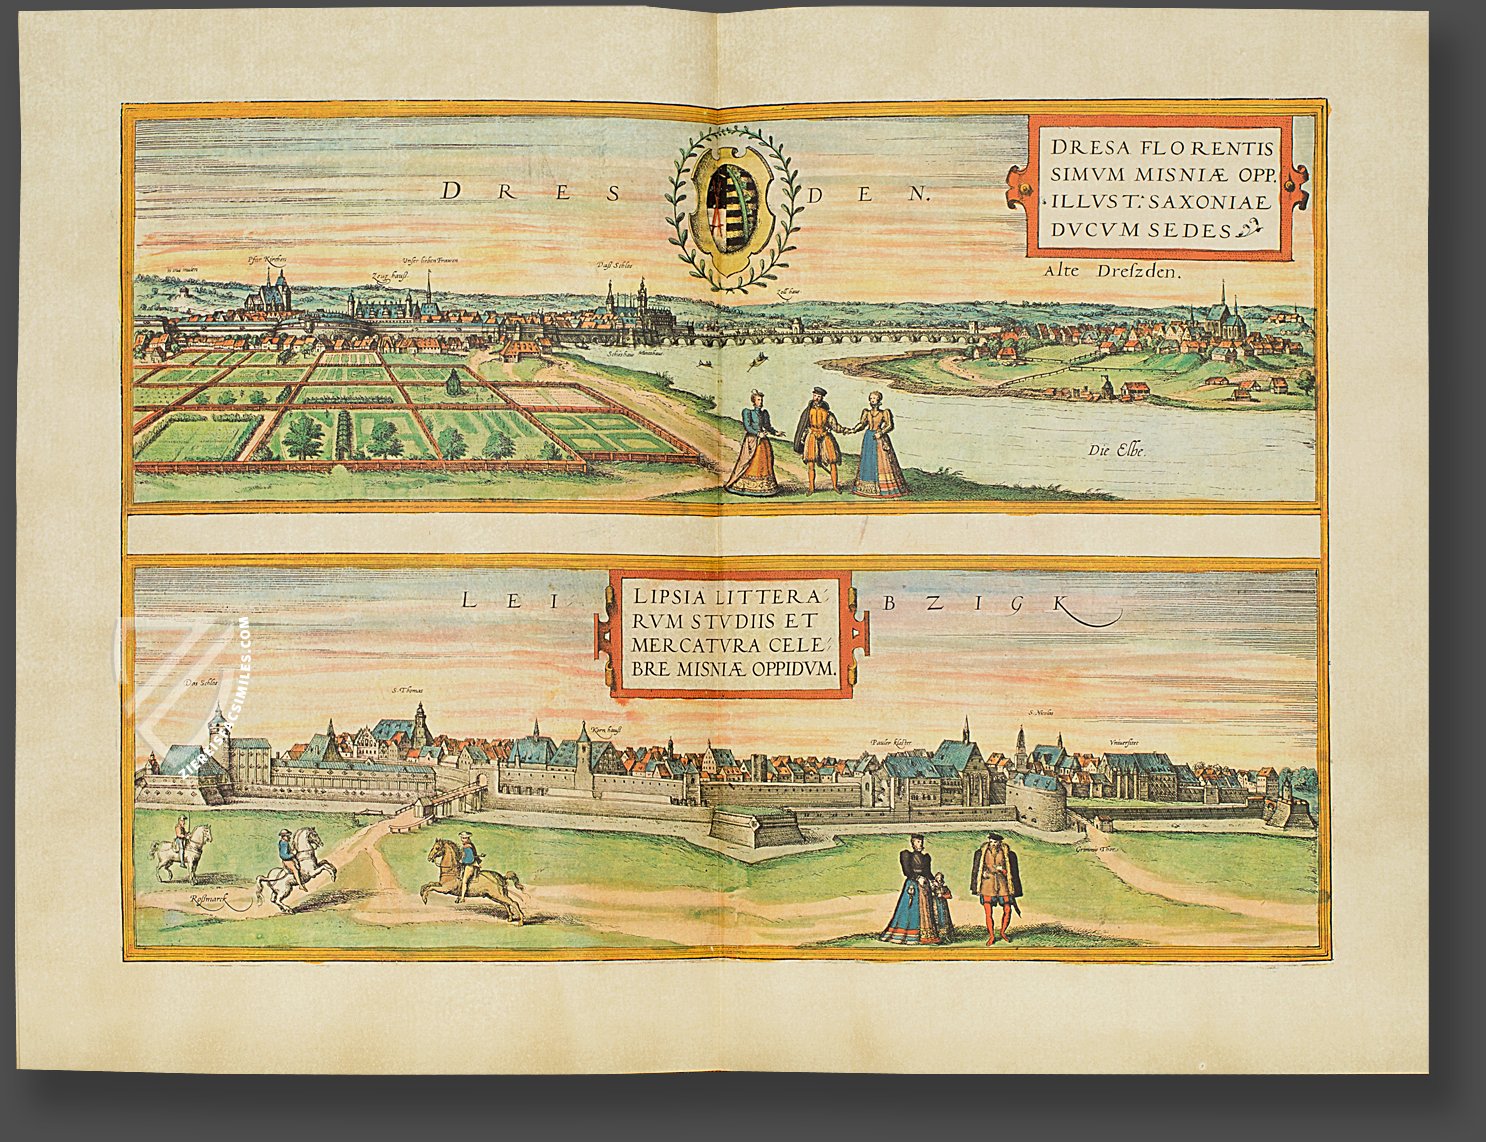 DRESDEN.
DRESA FLORENTIS
SIMVM MISNIÆ OPP.
ILLVST: SAXONIAE
DVCVM SEDES
Alte Dreſzden.
Pfar Kirchen
Zeug hauß.
Unſer lieben Frawen
Daß Schlos
Zoll haus
Schishaus
Die Elbe.
LEIBZIGK
LIPSIA LITTERA-
RVM STVDIIS ET
MERCATVRA CELE-
BRE MISNIÆ OPPIDVM.
Das Schlos
S. Thomas
Korn hauß
Pauler kloſter
S. Nicolas
Vniuerſitet
Grimmiſ Thor
Roſſmarck
ZIEREISFACSIMILES.COM